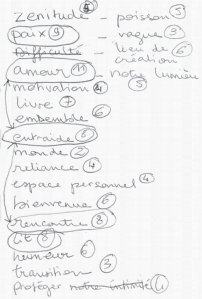 zenitude ⑧ – poisson ⑤
paix ⑨ – vague ③
difficulté – lieu de ⑥
création
amour ⑪ – notre lumière ⑤
motivation ④
livre ⑦
ensemble ⑥
entraide ⑧
monde ②
reliance ④
espace personnel ④
bienvenue ⑥
rencontre ⑧
lit ⑧
humeur ⑥
transition ③
protéger notre intimité ①